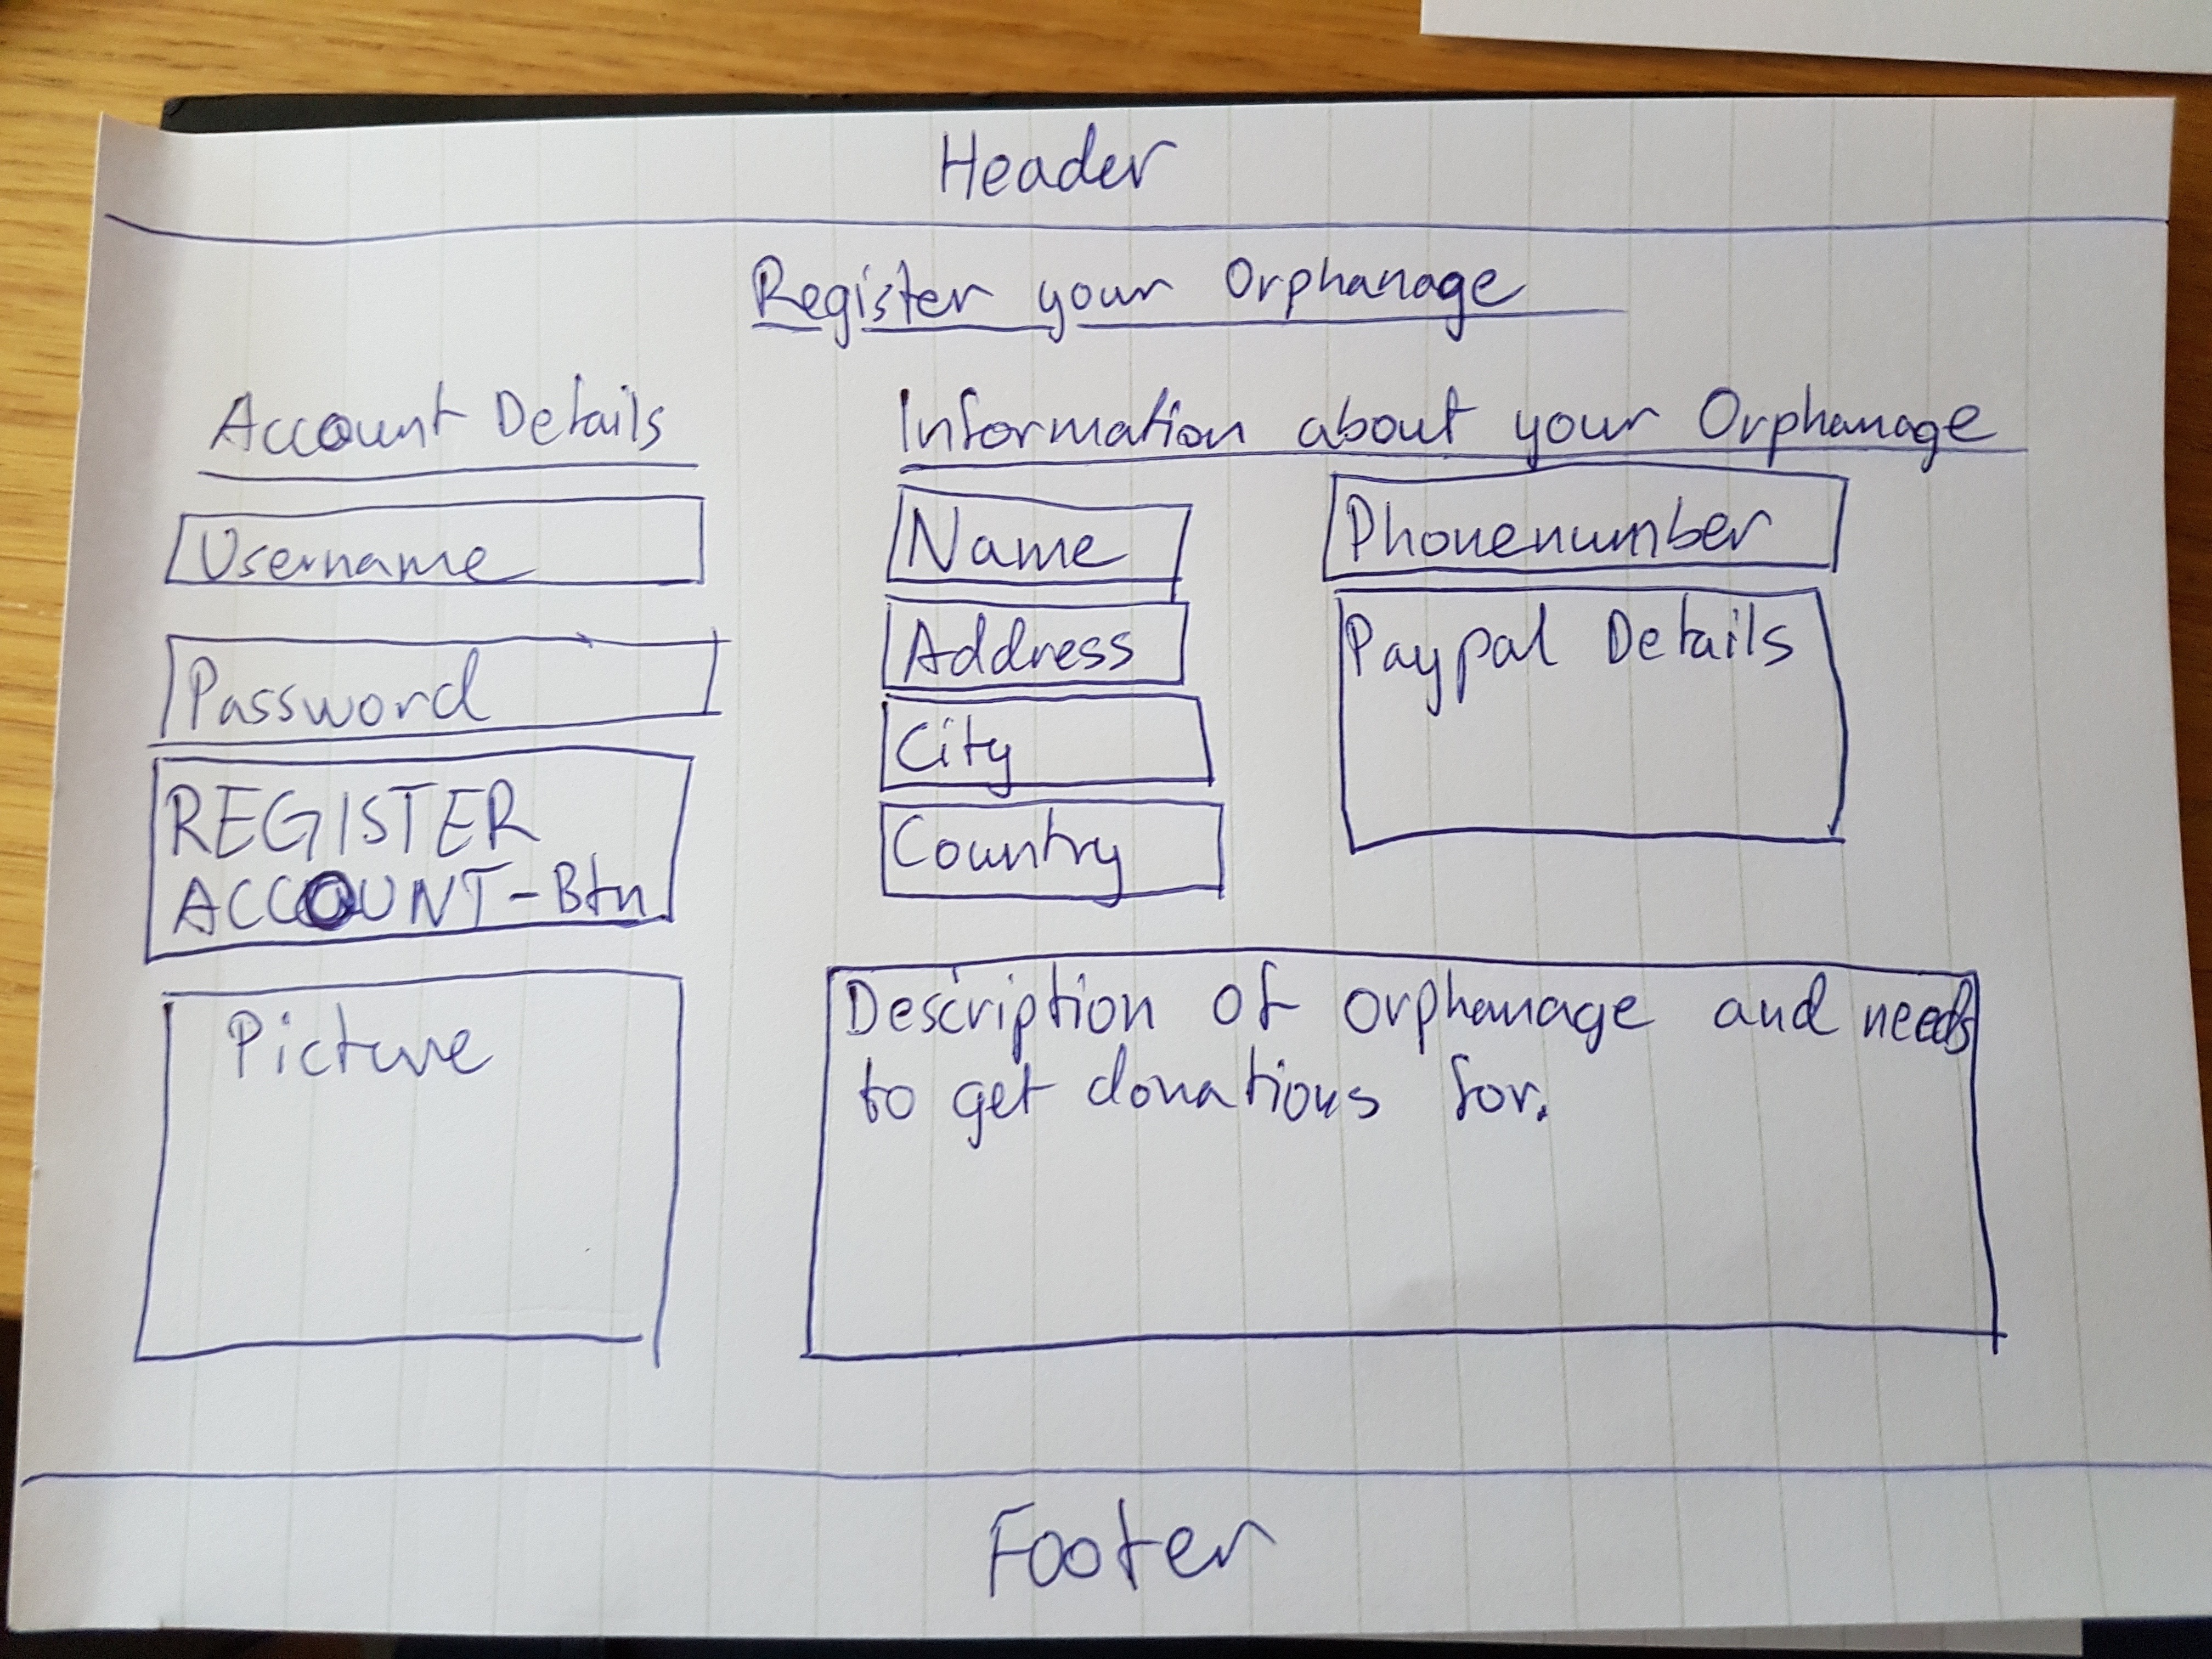 Header
Register your Orphanage
Account Details
Username
Password
REGISTER
ACCOUNT-Btn
Picture
Information about your Orphanage
Name
Address
City
Country
Phonenumber
Paypal Details
Description of orphanage and needs
to get donations for.
Footer